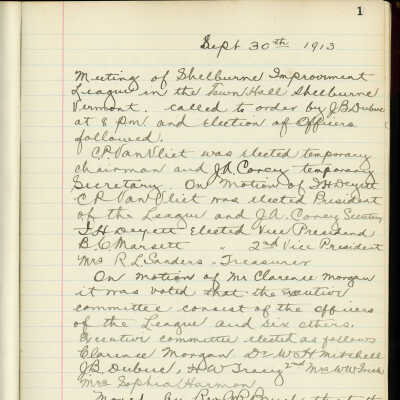 1
Sept 30th 1913
Meeting of Shelburne Improvement
League in the Town Hall Shelburne
Vermont. called to order by J.B Dubuc
at 8 P.M and election of Officers
followed.
C.P. Van Vliet was elected temporary
chairman and J.A. Coney temporary
Secretary. On Motion of I.H Deyett
C.P. Van Vliet was elected President
of the League and J.A. Coney Secretary
I.H Deyett Elected Vice President
B.C Marsett " 2nd Vice President
Mrs R L Sanders - Treasurer
On motion of Mr Clarence Morgan
it was voted that the executive
committee consist of the officers
of the League and six others.
Executive committee elected as follows
Clarence Morgan Dr W H Mitchell
J.B. Dubuc, H W Tracy 2nd Mrs W W
Mrs Sophia Harmon
Moved by Rev that the